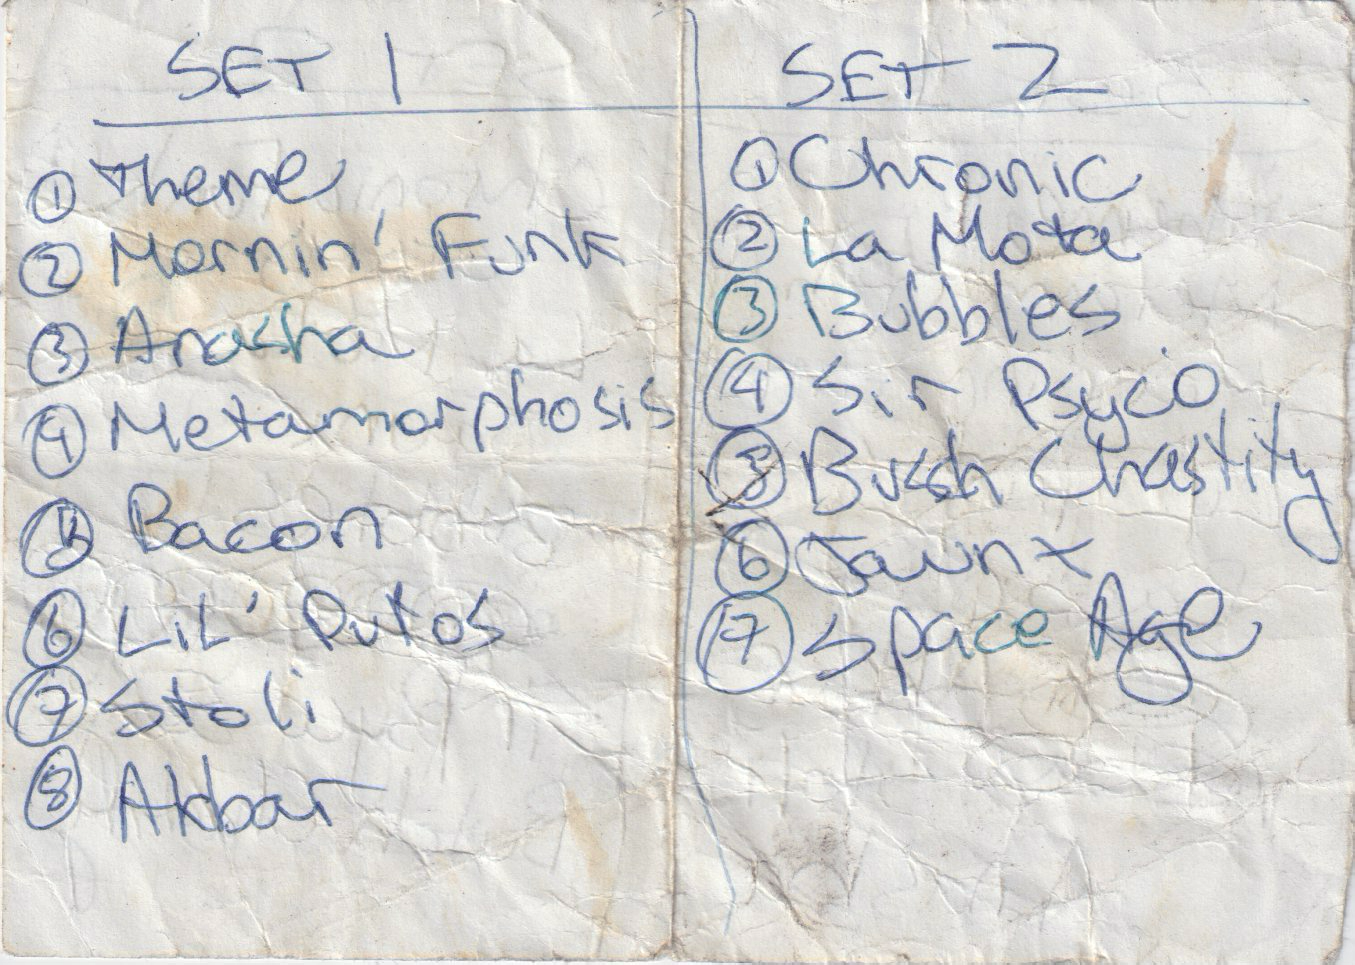 SET 1
① Theme
② Mornin' Funk
③ Anasha
④ Metamorphosis
⑤ Bacon
⑥ LiL' Putos
⑦ Stoli
⑧ Akbar
SET 2
① Chronic
② La Mota
③ Bubbles
④ Sir Psyco
⑤ Bussh Chastity
⑥ Jaunx
⑦ Space Age